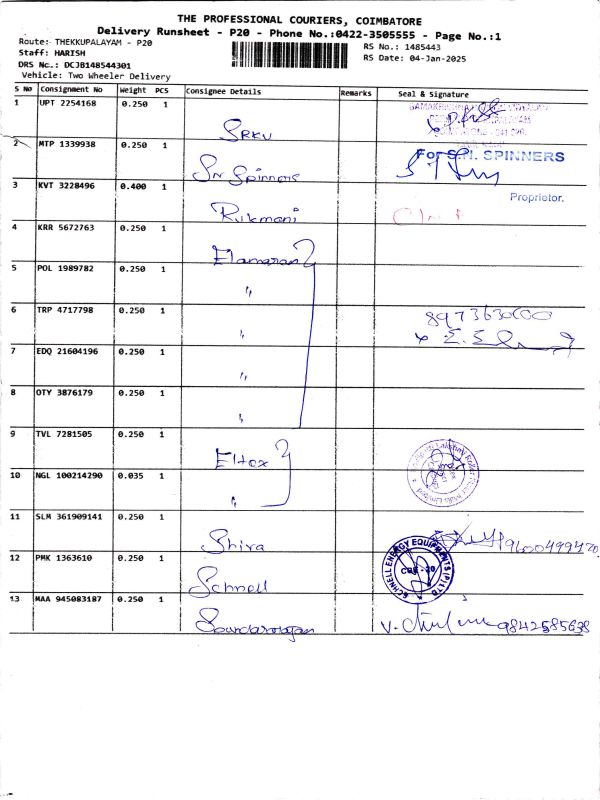 THE PROFESSIONAL COURIERS, COIMBATORE
Delivery Runsheet - P20 - Phone No.:0422-3505555 - Page No.:1
Route: THEKKUPALAYAM - P20
Staff: HARISH
DRS No.: DCJB148544301
Vehicle: Two Wheeler Delivery
RS No.: 1485443
RS Date: 04-Jan-2025
S No Consignment No Weight PCS Consignee Details Remarks Seal & Signature
1 UPT 2254168 0.250 1 SRKV
2 MTP 1339938 0.250 1 Sri Spinners For S.N. SPINNERS
3 KVT 3228496 0.400 1 Rukmani Proprietor.
4 KRR 5672763 0.250 1 Elamaran
5 POL 1989782 0.250 1 "
6 TRP 4717798 0.250 1 "
7 EDQ 21604196 0.250 1 "
8 OTY 3876179 0.250 1 "
9 TVL 7281505 0.250 1 Eltex
10 NGL 100214290 0.035 1 "
11 SLM 361909141 0.250 1 Shiva 9600499420
12 PMK 1363610 0.250 1 Schnell SCHNELL ENERGY EQUIPMENTS (P) LTD
13 MAA 945083187 0.250 1 Soundarrajan 9842585638